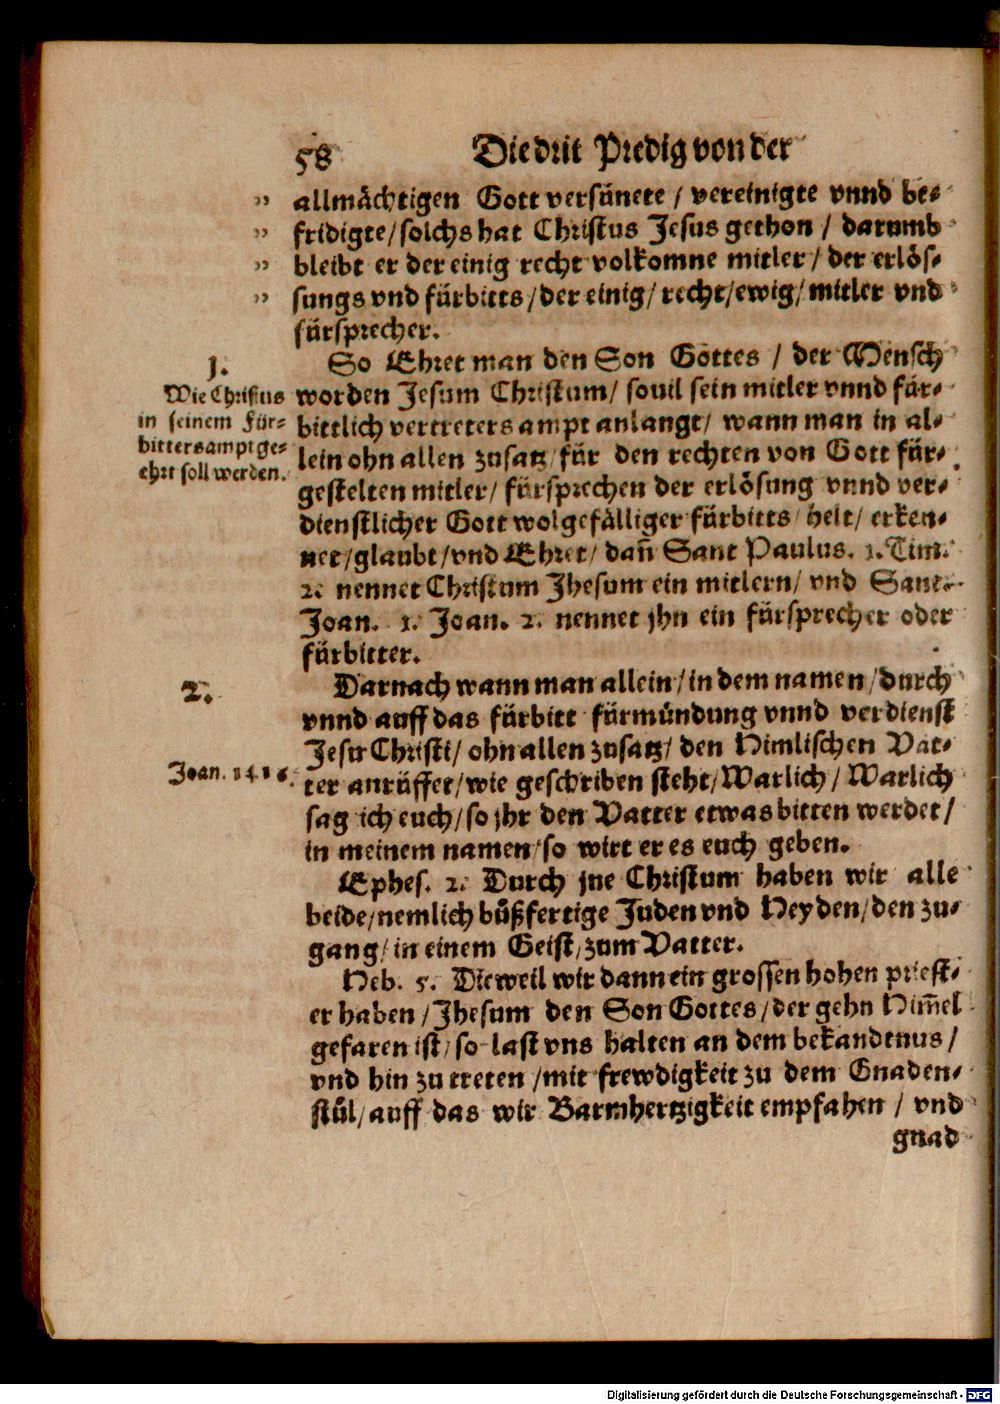 58 Die drit Predig von der
„ allmåchtigen Gott versünete / vereinigte vnnd be-
„ fridigte / solchs hat Christus Jesus gethon / darumb
„ bleibt er der einig recht volkomne mitler / der erlös-
„ sungs vnd fürbitts / der einig / recht / ewig / mitler vnd
fürsprecher.
1.
Wie Christus
in seinem Für-
bittersampt ge-
ehrt soll werden.
So Ehret man den Son Gottes / der Mensch
worden Jesum Christum / souil sein mitler vnnd für-
bittlich vertreters ampt anlangt / wann man in al-
lein ohn allen zusatz / für den rechten von Gott für-
gestelten mitler / fürsprechen der erlösung vnnd ver-
dienstlicher Gott wolgefålliger fürbitts / helt / erken-
net / glaubt / vnd Ehret / dañ Sant Paulus. 1. Tim.
2. nennet Christum Jhesum ein mitlern / vnd Sant
Joan. 1. Joan. 2. nennet jhn ein fürsprecher oder
fürbitter.
2.
Darnach wann man allein / in dem namen / durch
vnnd auff das fürbitt fürmündung vnnd verdienst
Jesu Christi / ohn allen zusatz / den Himlischen Vat-
Joan. 14.16.
ter anrüffet / wie geschriben steht / Warlich / Warlich
sag ich euch / so jhr den Vatter etwas bitten werdet /
in meinem namen / so wirt er es euch geben.
Ephes. 2. Durch jne Christum haben wir alle
beide / nemlich bůßfertige Juden vnd Heyden / den zu-
gang / in einem Geist / zum Vatter.
Heb. 5. Dieweil wir dann ein grossen hohen priest-
er haben / Jhesum den Son Gottes / der gehn Him̄el
gefaren ist / so last vns halten an dem bekandtnus /
vnd hin zu tretten / mit frewdigkeit zu dem Gnaden-
stůl / auff das wir Barmhertzigkeit empfahen / vnd
gnad
Digitalisierung gefördert durch die Deutsche Forschungsgemeinschaft - DFG